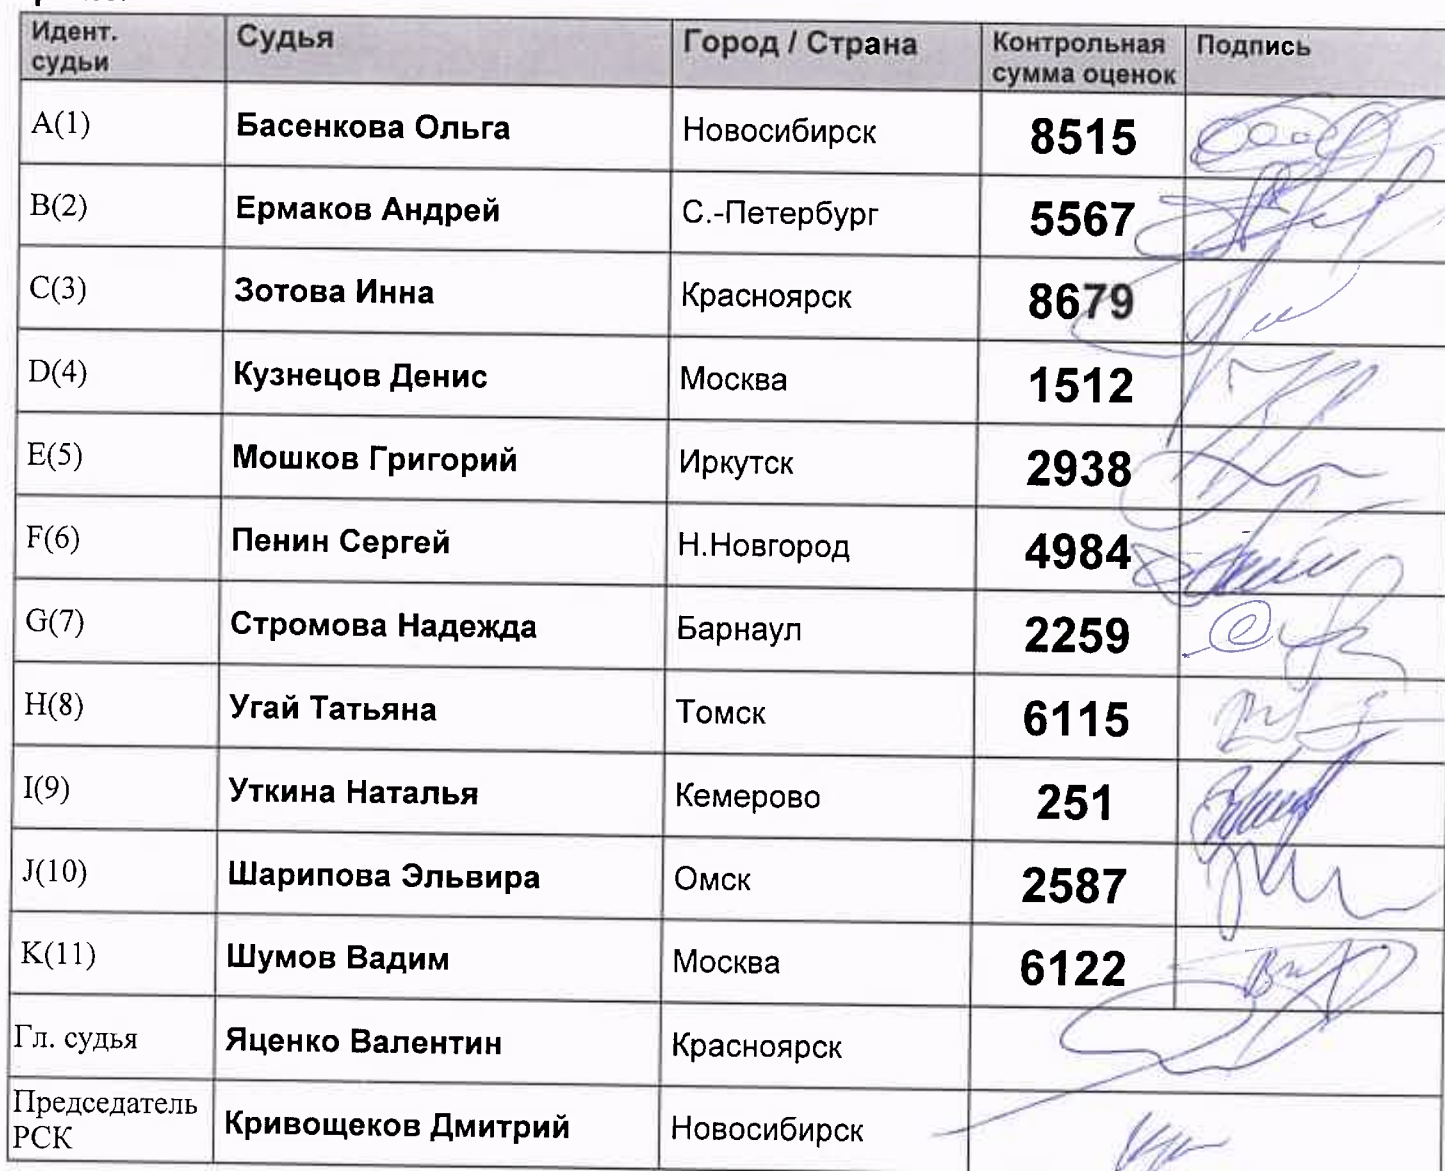 Идент. судьи Судья Город / Страна Контрольная сумма оценок Подпись
A(1) Басенкова Ольга Новосибирск 8515
B(2) Ермаков Андрей С.-Петербург 5567
C(3) Зотова Инна Красноярск 8679
D(4) Кузнецов Денис Москва 1512
E(5) Мошков Григорий Иркутск 2938
F(6) Пенин Сергей Н.Новгород 4984
G(7) Стромова Надежда Барнаул 2259
H(8) Угай Татьяна Томск 6115
I(9) Уткина Наталья Кемерово 251
J(10) Шарипова Эльвира Омск 2587
K(11) Шумов Вадим Москва 6122
Гл. судья Яценко Валентин Красноярск
Председатель РСК Кривощеков Дмитрий Новосибирск